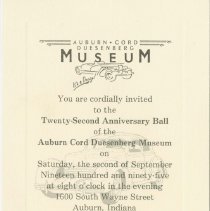 AUBURN · CORD
DUESENBERG
MUSEUM
You are cordially invited
to the
Twenty-Second Anniversary Ball
of the
Auburn Cord Duesenberg Museum
on
Saturday, the second of September
Nineteen hundred and ninety-five
at eight o'clock in the evening
1600 South Wayne Street
Auburn, Indiana